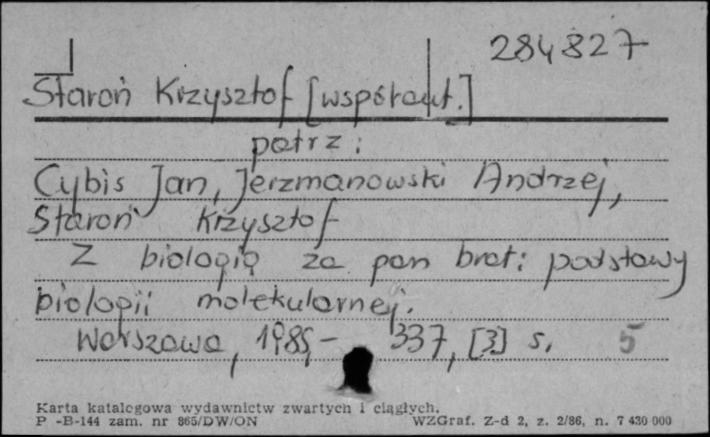 284827
Staroń Krzysztof [współaut.]
patrz:
Cybis Jan, Jerzmanowski Andrzej,
Staroń Krzysztof
Z biologią za pan brat: podstawy
biologii molekularnej.
Warszawa, 1985, – 337, [3] s. 5
Karta katalogowa wydawnictw zwartych i ciągłych.
P -B-144 zam. nr 865/DW/ON WZGraf. Z-d 2, z. 2/86, n. 7 430 000